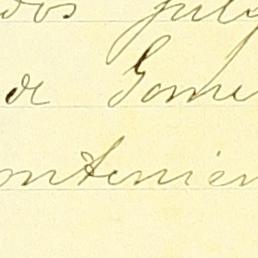 dos july
de Gome
ontenien